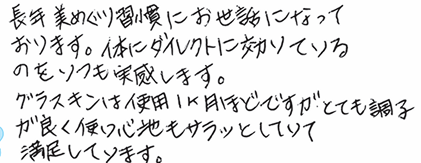 長年美めぐり習慣にお世話になって
おります。体にダイレクトに効いている
のをいつも実感します。
グラスキンは使用1ヶ月ほどですがとても調子
が良く使い心地もサラッとしていて
満足しています。